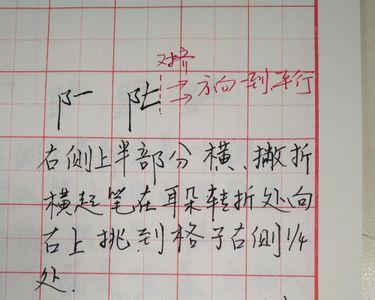 对齐
→方向一致平行
→
右侧上半部分横、撇折
横起笔在耳朵转折处向
右上挑到格子右侧1/4
处.